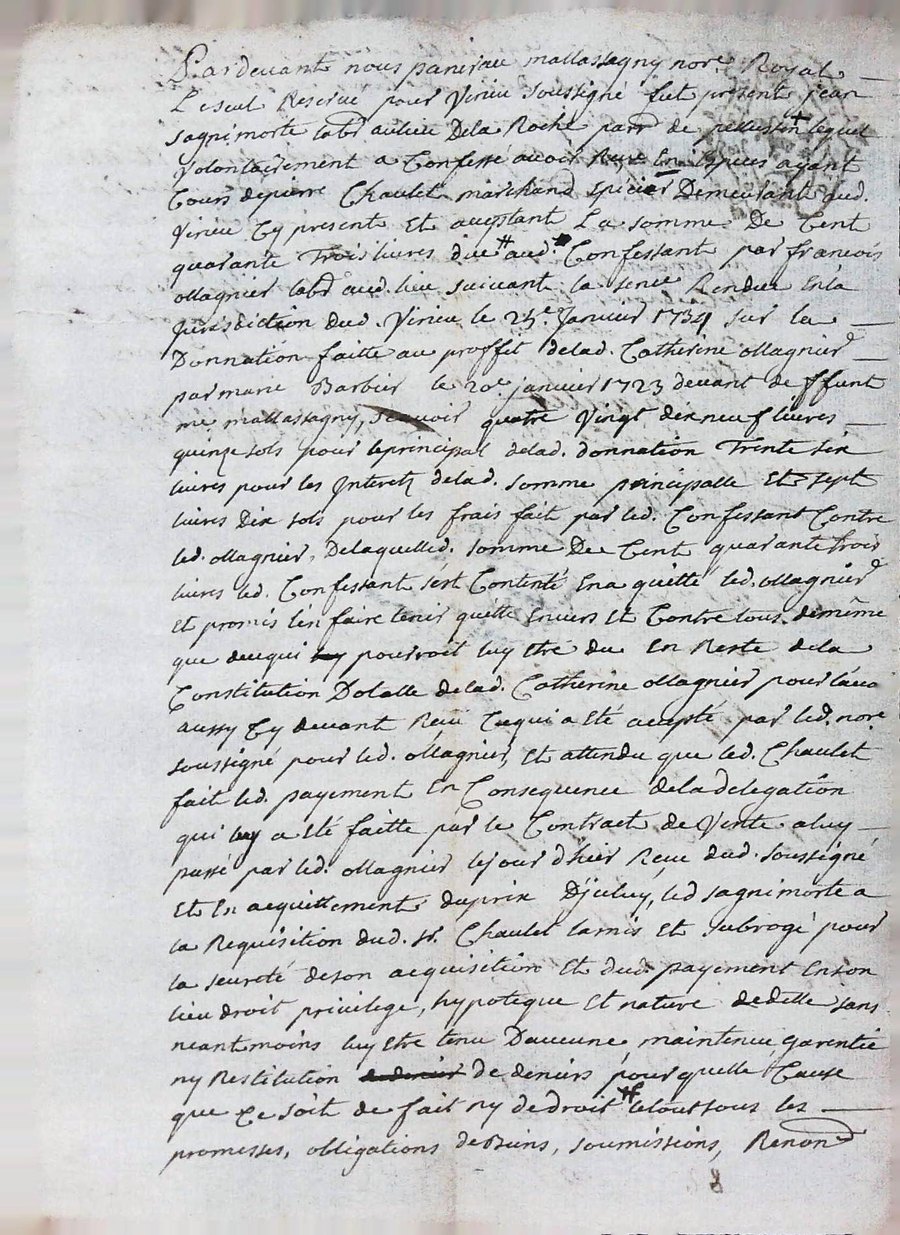 Pardevant nous panerau mallassagny nore Royal
Le seul Reservé pour Virieu soussigné fut present jean
sagnimorte labr au lieu Dela Roche parr de pellussin + lequel
Volontairement a Confessé avoir Reçu En Especes ayant
Cours de pierre Chaulet marchand Epicier Demeurant aud.
Virieu Cy present Et aceptant La somme De Cent
quarante Trois livres due # aud. Confessant par francois
Ollagnier labr aud. lieu suivant la sence Rendue En la
Jurisdiction dud. Virieu le 25e Janvier 1734 sur la
Donnation faitte au proffit delad. Catherine Ollagnier
par marie Barbier le 20e janvier 1723 devant deffunt
me mallassagny, scavoir quatre Vingt dix neuf livres
quinze sols pour le principal delad. donnation Trente six
livres pour les Interetz delad. somme principalle Et sept
livres Dix sols pour les frais fait par led. Confessant Contre
led. Ollagnier, De laquelled. somme De Cent quarante trois
livres led. Confessant s'est Contenté En a quitté led. Ollagnier
Et promis l'en faire tenir quitte Envers Et Contre tous de même
que de ce qui pourroit luy Etre du En Reste dela
Constitution Dotalle delad. Catherine Ollagnier pour l'avoir
aussy Cy devant Reçu Ce qui a Eté acepté par led. nore
soussigné pour led. Ollagnier, Et attendu que led. Chaulet
fait led. payement En Consequence dela delegation
qui luy a Eté faitte par le Contract de Vente a luy
passé par led. Ollagnier le jour d'hier Reçu dud. soussigné
Et En acquittement du prix D'jceluy, led sagnimorte a
la Requisition dud. sr. Chaulet l'a mis Et subrogé pour
la seureté de son acquisition Et dud. payement En son
lieu droit privilege, hypoteque Et nature de dette sans
neantmoins luy Etre tenu D'aucune maintenue, garentie
ny Restitution de deniers pour quelle Cause
que Ce soit de fait ny de droit # le tout sous les
promesses, obligations de Biens, soumissions, Renond